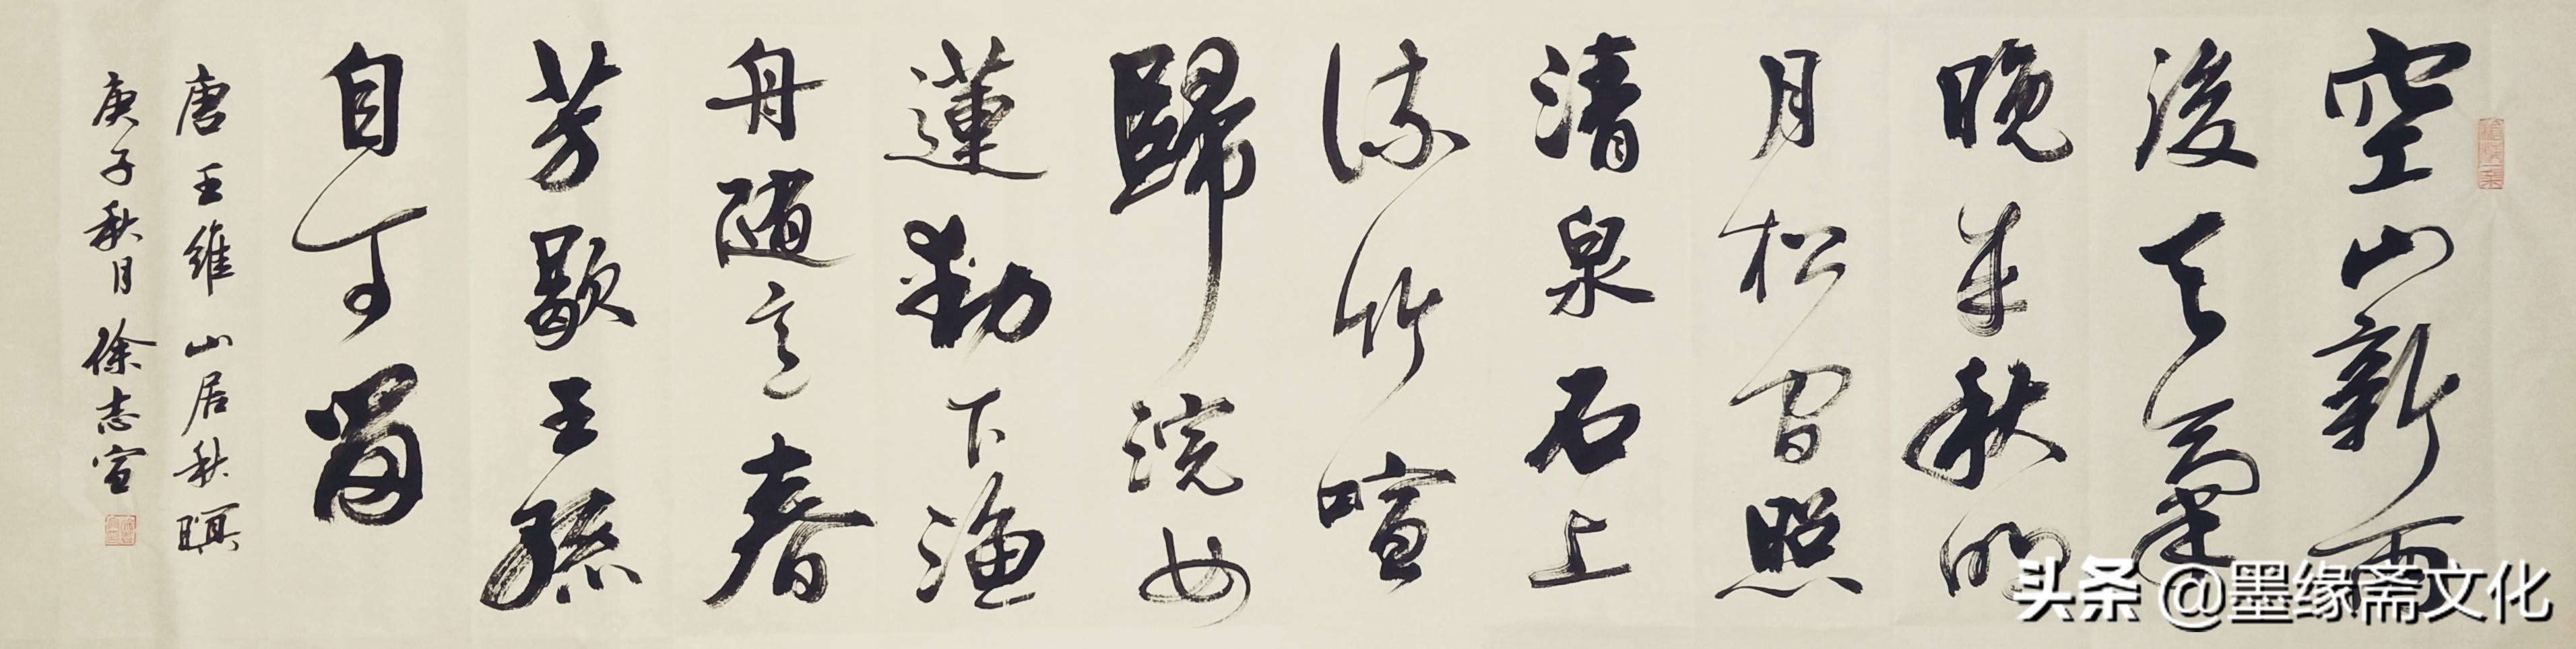 空山新雨
後天氣
晚来秋明
月松间照
清泉石上
流竹喧
歸浣女
蓮動下漁
舟随意春
芳歇王孫
自可留
唐王維 山居秋暝
庚子秋月 徐志宣
头条 @墨缘斋文化